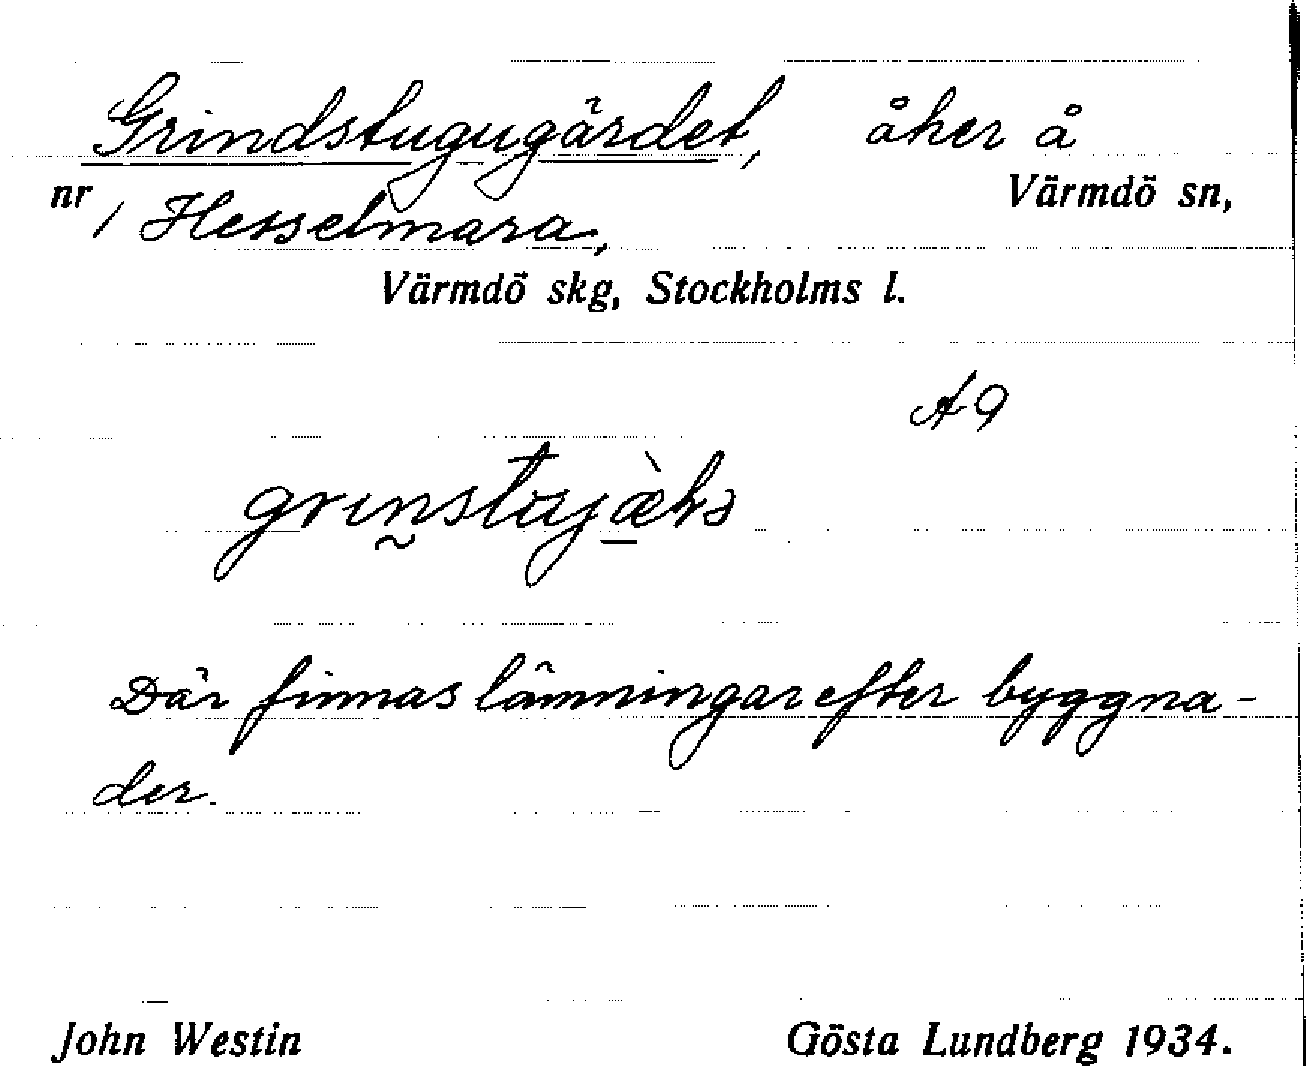 Grindstugugärdet, åker å
Värmdö sn,
nr / Hesselmara,
Värmdö skg, Stockholms l.
A9
Där finnas lämningar efter byggna-
der.
John Westin Gösta Lundberg 1934.